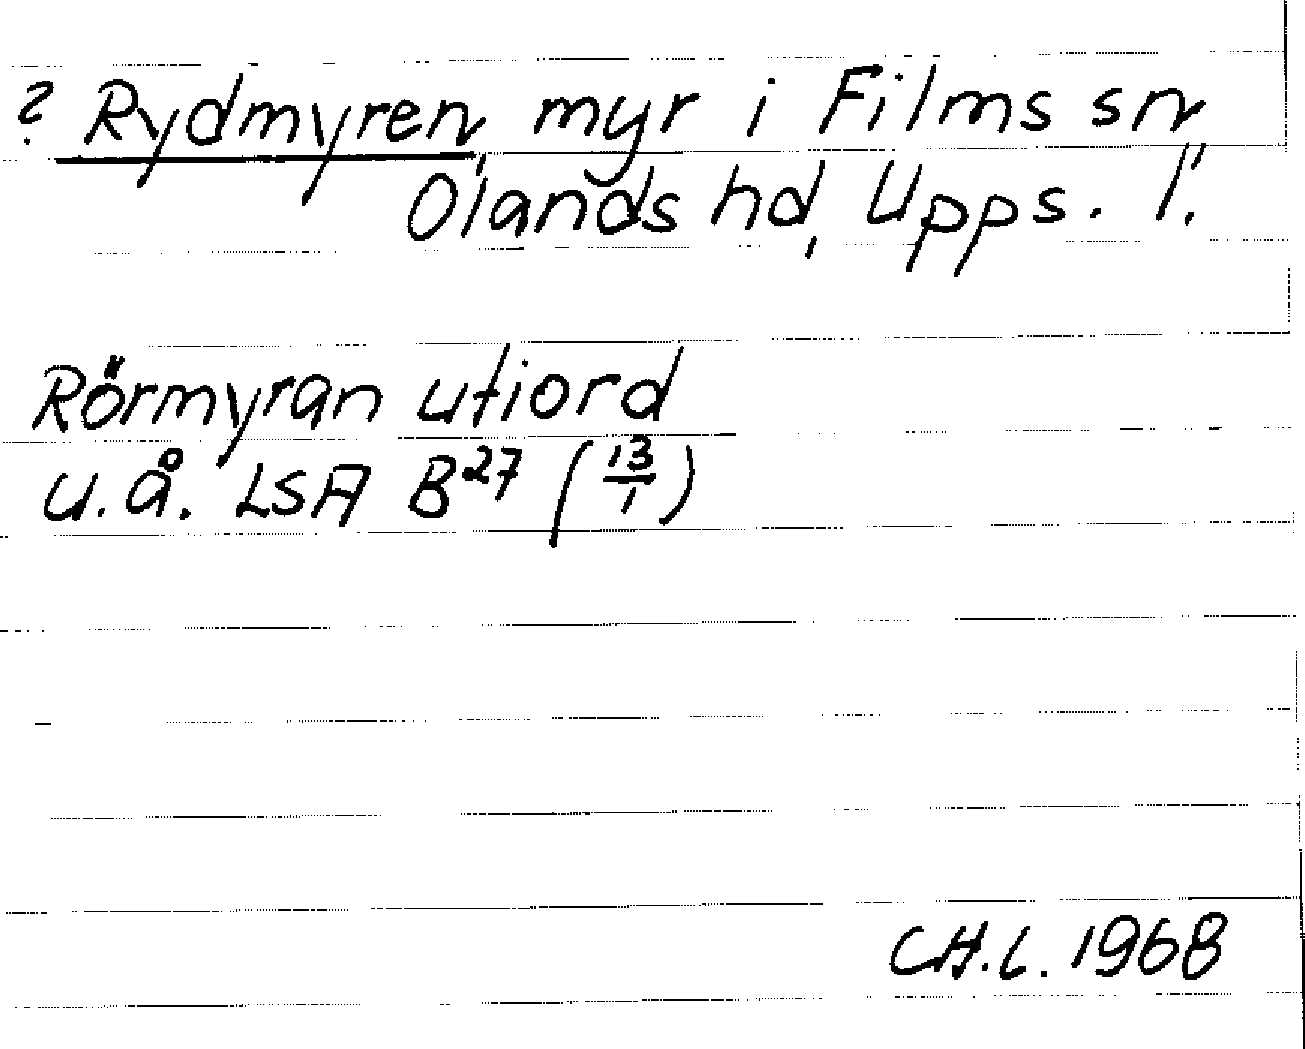 ? Rydmyren, myr i Films sn,
Olands hd, Upps. l.
Rörmyran utjord
u.å. LSA B²⁷ (13/1)
C.H.L. 1968